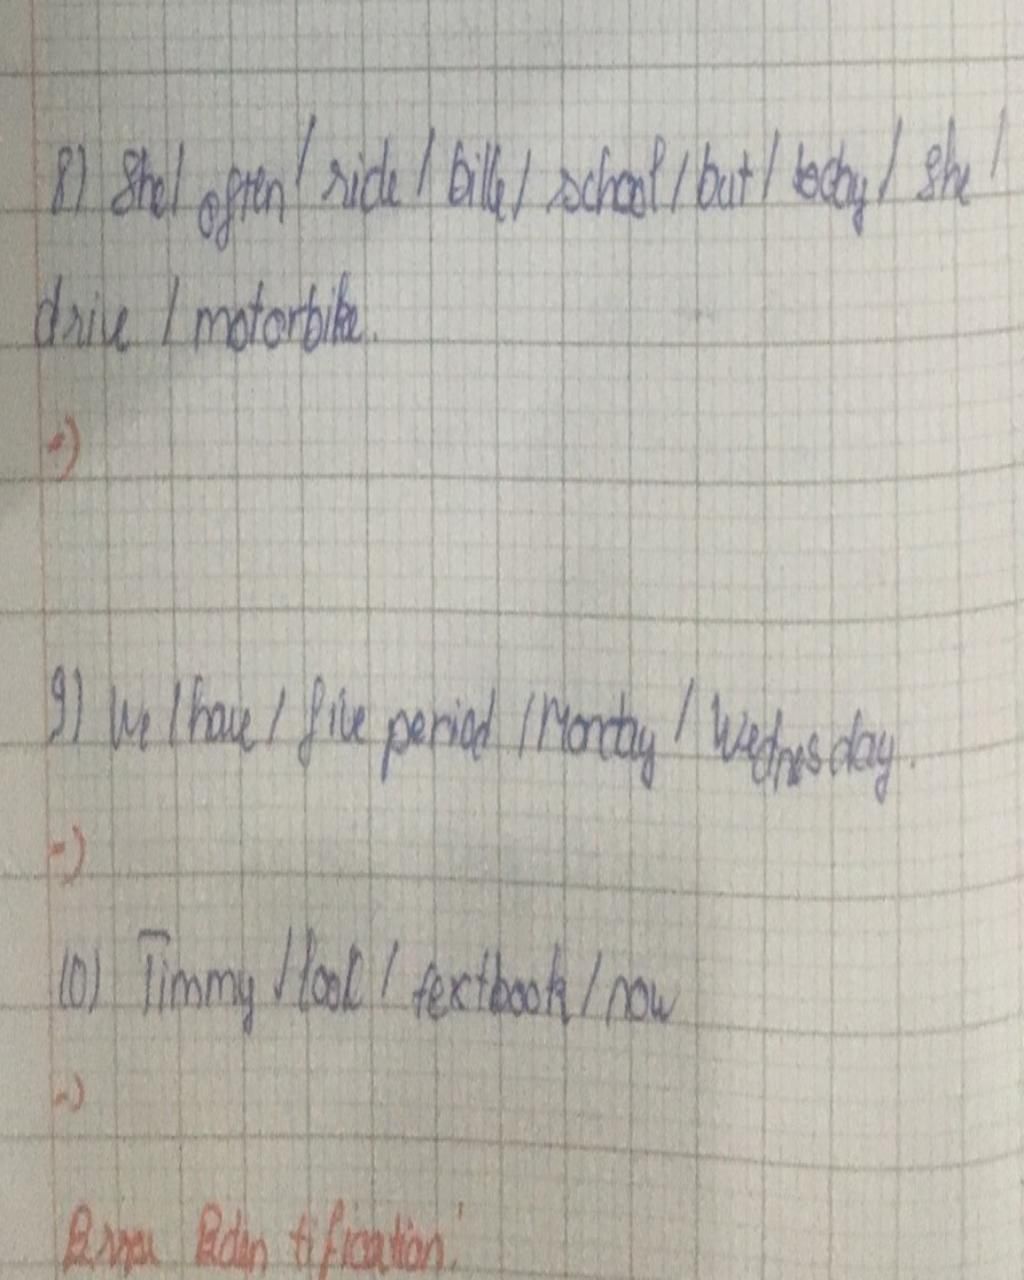 8) She / often / ride / bike / school / but / today / she /
drive / motorbike.
=)
9) We / have / five period / Monday / Wednesday.
=)
10) Timmy / look / textbook / now
=)
Error Iden tification: